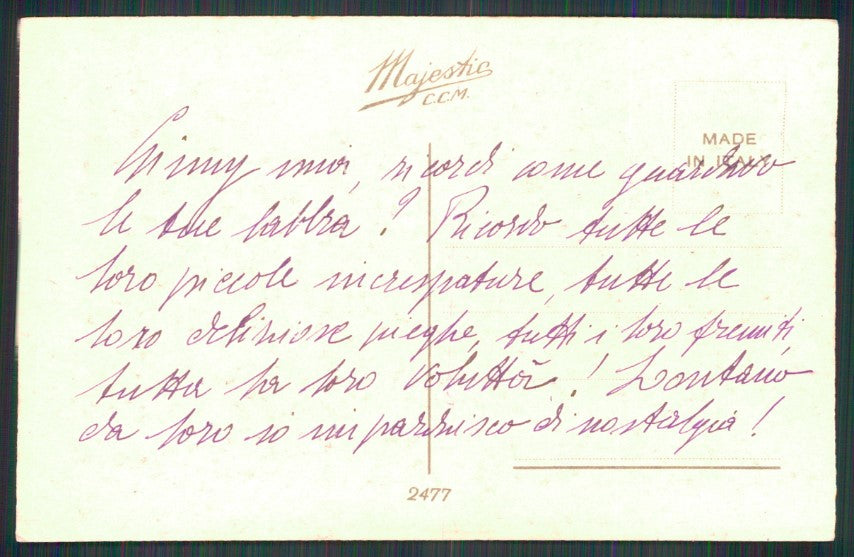 Majestic
C.C.M.
MADE
IN ITALY
mia, ricordi come guardavo
le tue labbra? Ricordo tutte le
loro piccole increspature, tutte le
loro deliziose pieghe, tutti i loro fremiti
tutta la loro voluttà! Lontano
da loro io di nostalgia!
2477